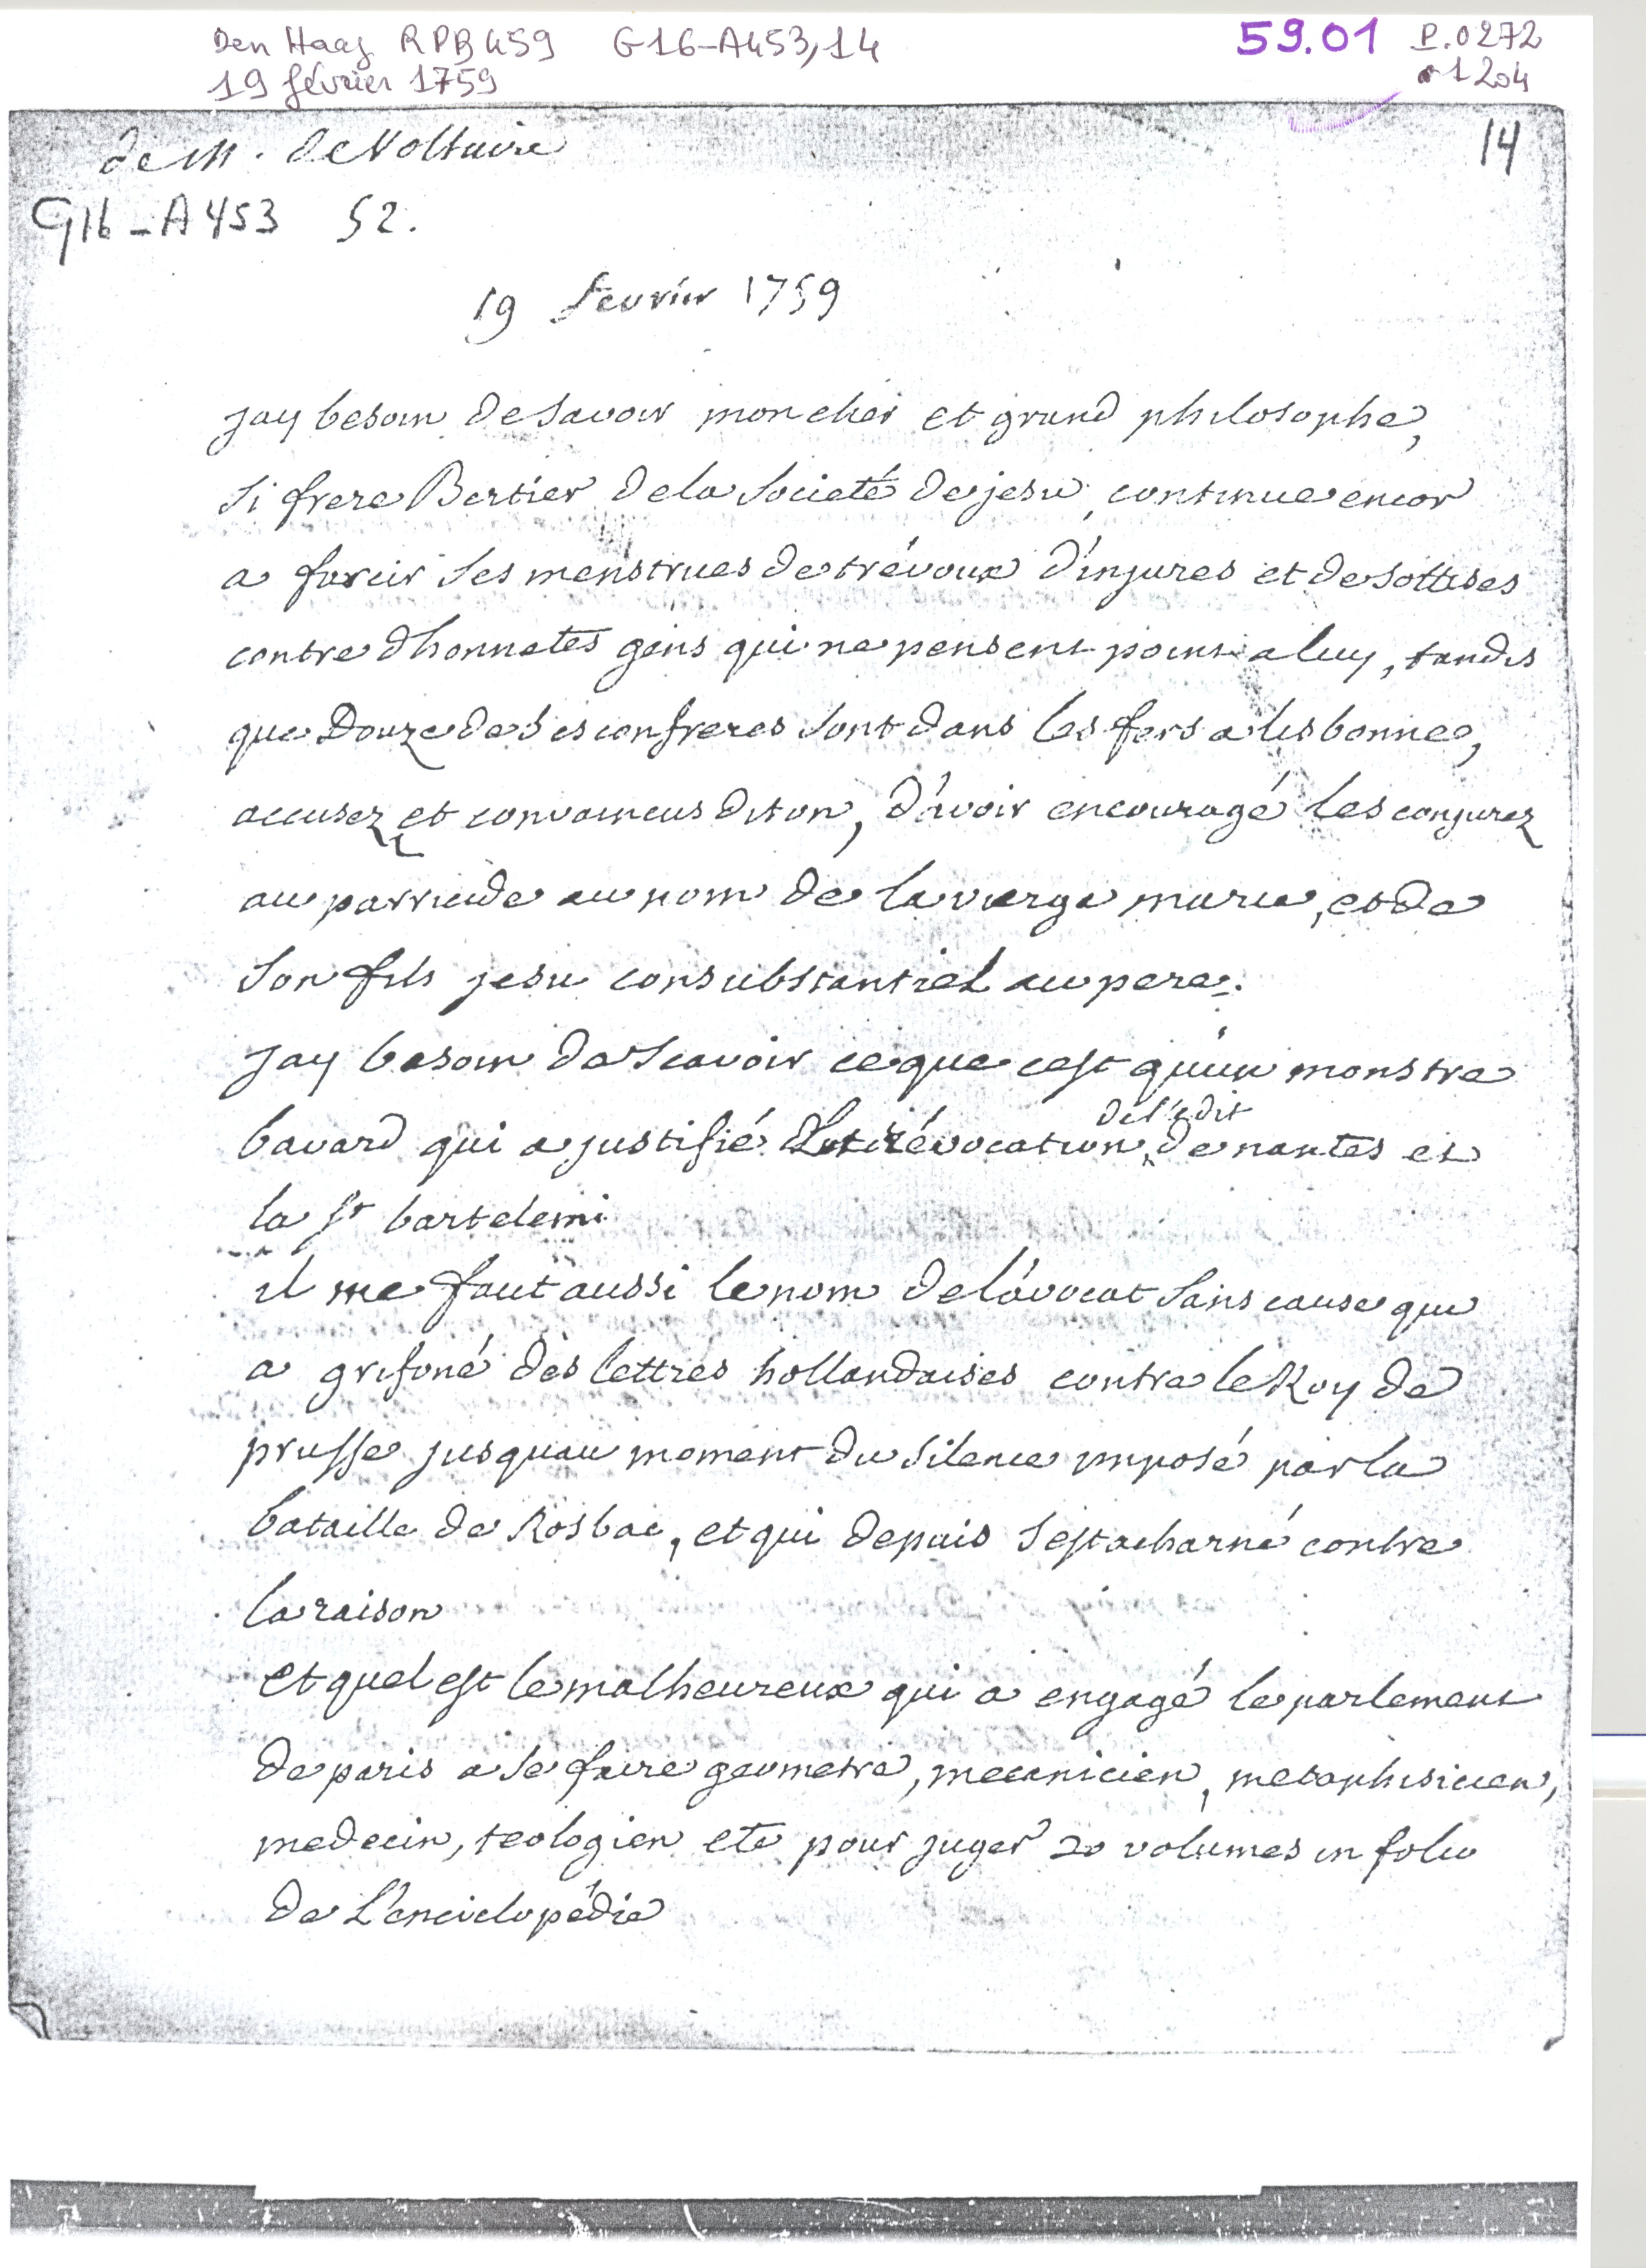 Den Haag RPB 459 G16-A453,14 59.01 P.0272
19 février 1759 1204
de M. de Voltaire 14
G16-A453 52.
19 fevrier 1759
jay besoin de savoir mon cher et grand philosophe,
si frere Bertier de la societé de jesu, continue encor
a farcir ses menstrues de trévoux d'injures et de sottises
contre d'honnetes gens qui ne pensent point a luy, tandis
que Douze de ses confreres sont dans les fers a lisbonne,
accusez et convaincus diton, d'avoir encouragé les conjurez
au parricide au nom de la vierge marie, et de
son fils jesu consubstantiel au pere.
jay besoin de scavoir ce que cest qu'un monstre
bavard qui a justifié la révocation de l'édit de nantes et
la st bartelemi
il me faut aussi le nom de l'avocat sans cause qui
a grifoné des lettres hollandaises contre le Roy de
prusse jusquau moment du silence imposé par la
bataille de Rosbac, et qui depuis sest acharné contre
la raison
et quel est le malheureux qui a engagé le parlement
de paris a se faire geometre, mecanicien, metaphisicien,
medecin, teologien etc pour juger 20 volumes in folio
de L'enciclopédie